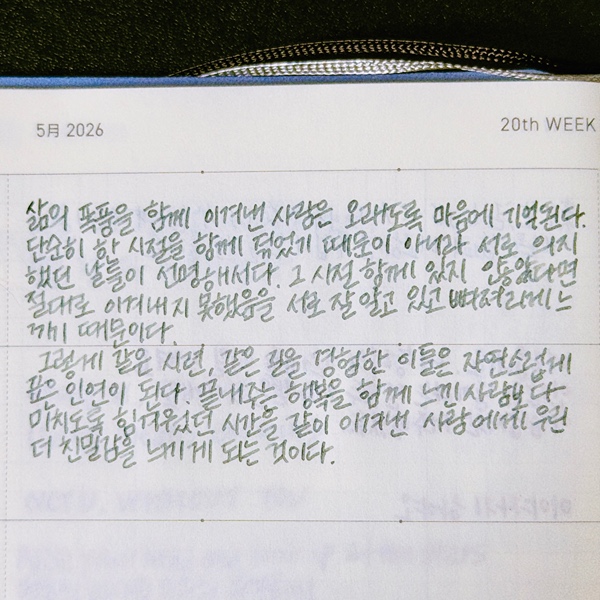 5月 2026
20th WEEK
삶의 폭풍을 함께 이겨낸 사람은 오래도록 마음에 기억된다.
단순히 한 시절을 함께 겪었기 때문이 아니라 서로 의지
했던 날들이 선명해서다. 그 시절 함께 있지 않았다면
절대로 이겨내지 못했음을 서로 잘 알고 있고 뼈저리게 느
끼기 때문이다.
그렇게 같은 시련, 같은 길을 경험한 이들은 자연스럽게
깊은 인연이 된다. 끝내주는 행복을 함께 느낀 사람보다
미치도록 힘겨웠던 시간을 같이 이겨낸 사람에게 우린
더 친밀감을 느끼게 되는 것이다.